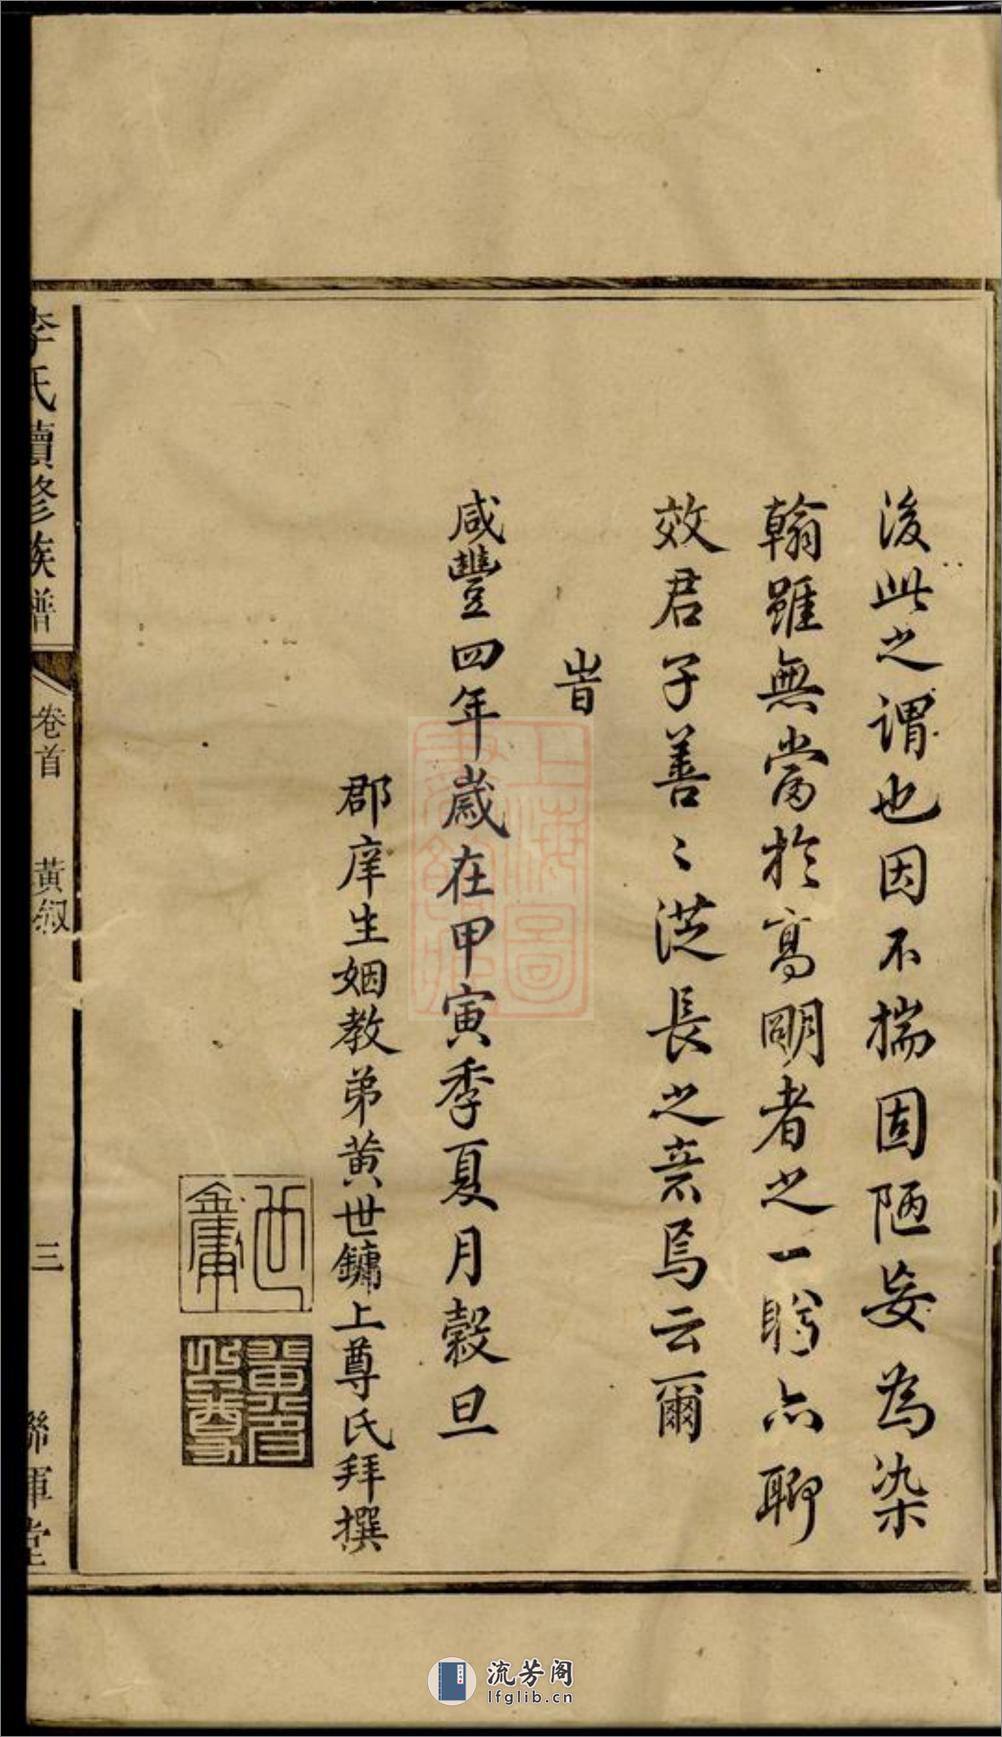 後此之謂也因不揣固陋妄為染
翰雖無當於高明者之一盻亦聊
效君子善〻從長之意焉云爾
旹
咸豐四年歲在甲寅季夏月穀旦
郡庠生姻教弟黄世鏞上尊氏拜撰
世鏞
上尊
李氏續修族譜
卷首
黃叙
三
聯軍堂
上海圖
流芳阁
lfglib.cn